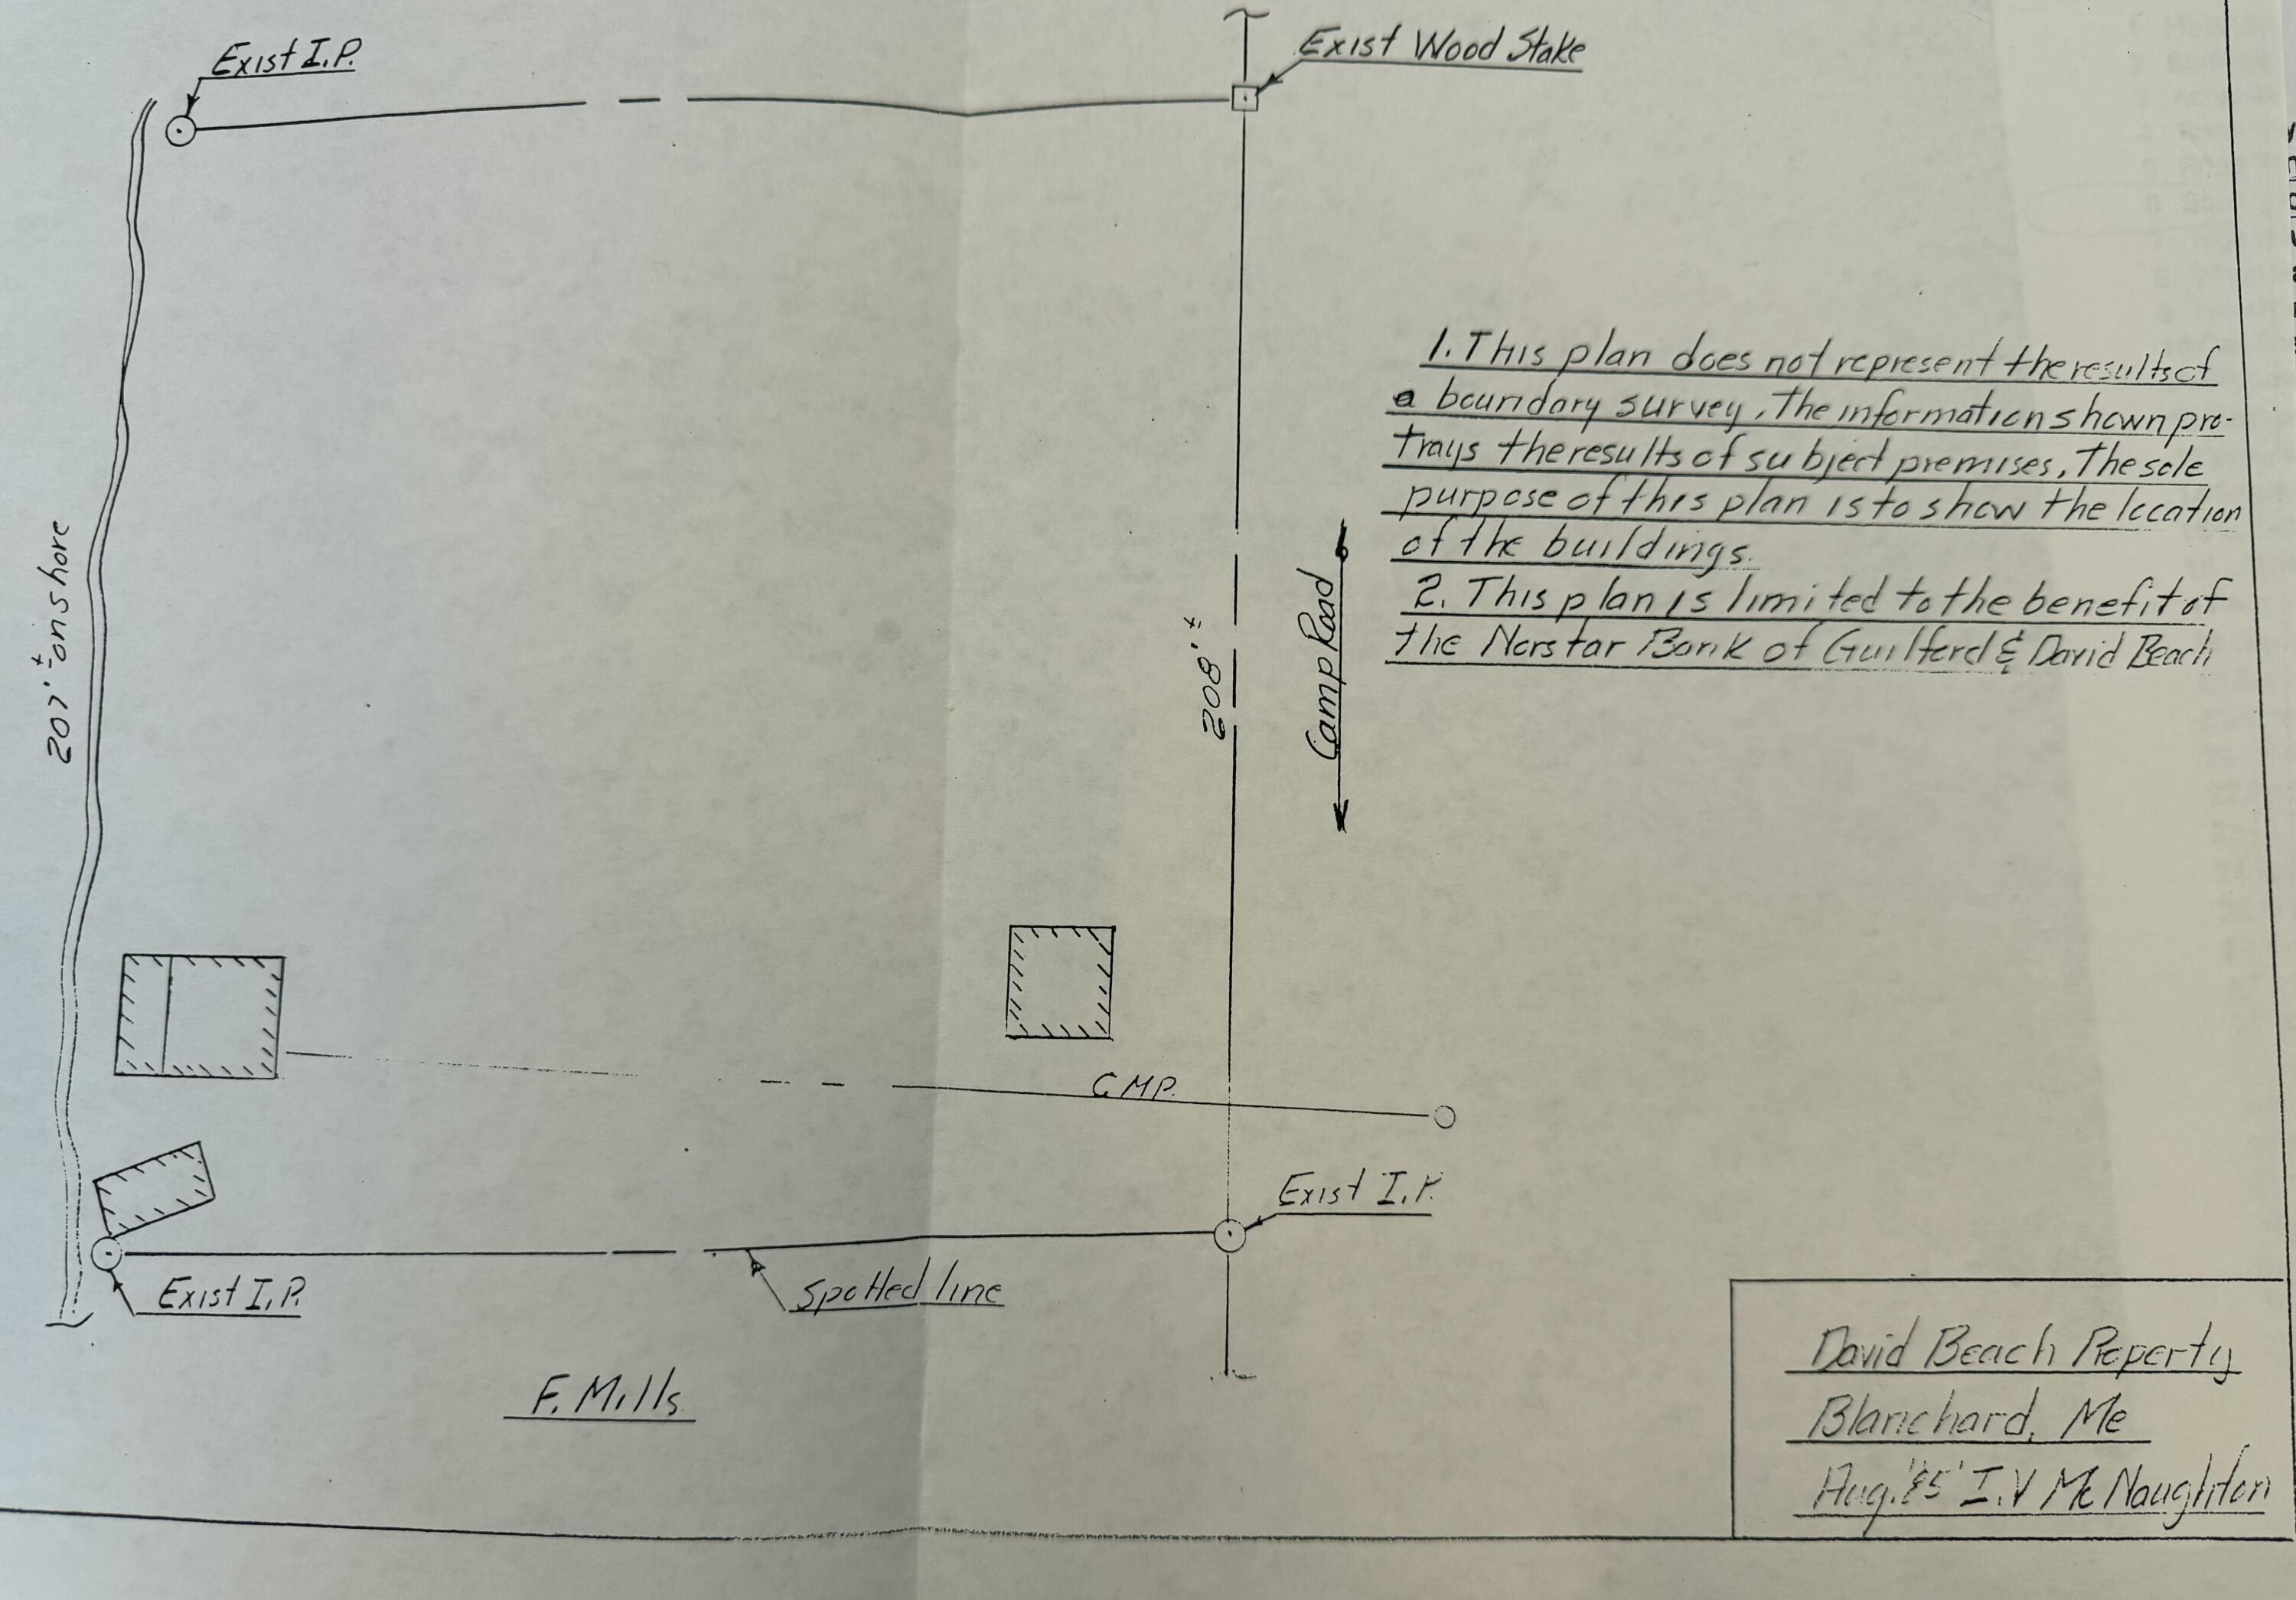 Exist I.P.
Exist Wood Stake
207'± on shore
208'±
Camp Road
1. This plan does not represent the results of
a boundary survey. The information shown pro-
trays the results of subject premises. The sole
purpose of this plan is to show the location
of the buildings.
2. This plan is limited to the benefit of
the Norstar Bank of Guilford & David Beach
C.M.P.
Exist I.P.
Exist I.P.
Spotted line
F. Mills
David Beach Property
Blanchard, Me
Aug. '85' I.V Mc Naughton